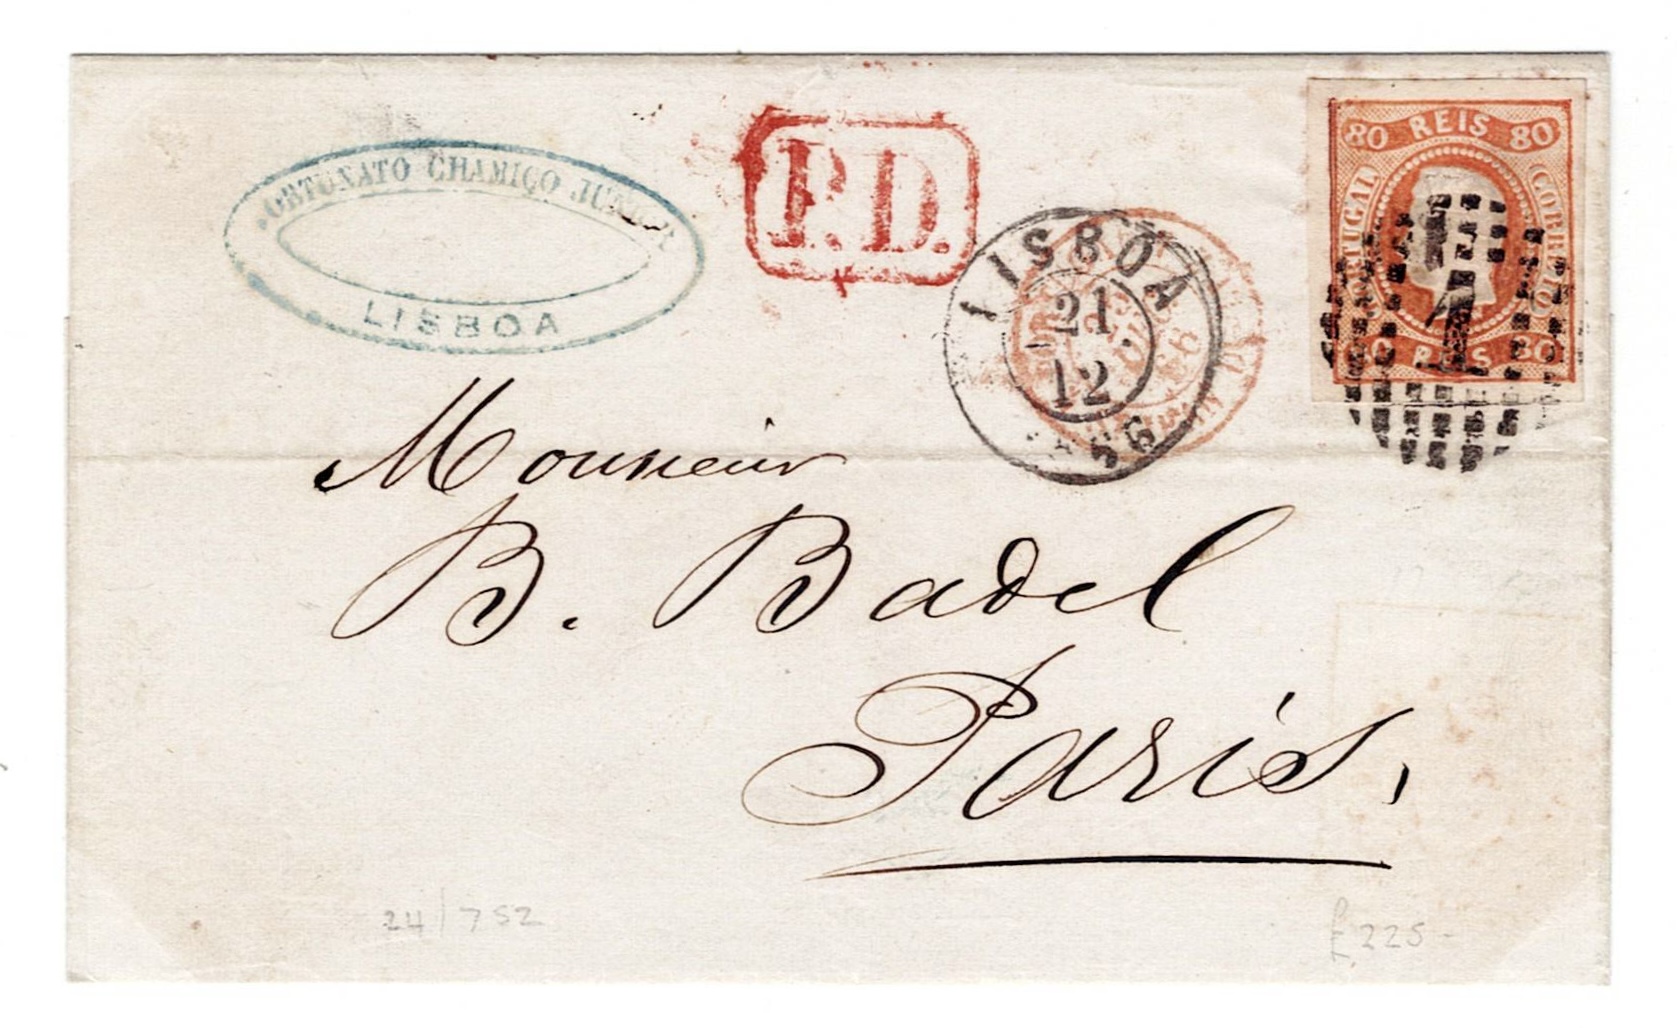 FORTUNATO CHAMIÇO JUNIOR
LISBOA
P.D.
LISBOA
21
12
1866
80 REIS 80
PORTUGAL
CORREIO
1
80 REIS 80
Monsieur
B. Badel
Paris,
24/752
£225-